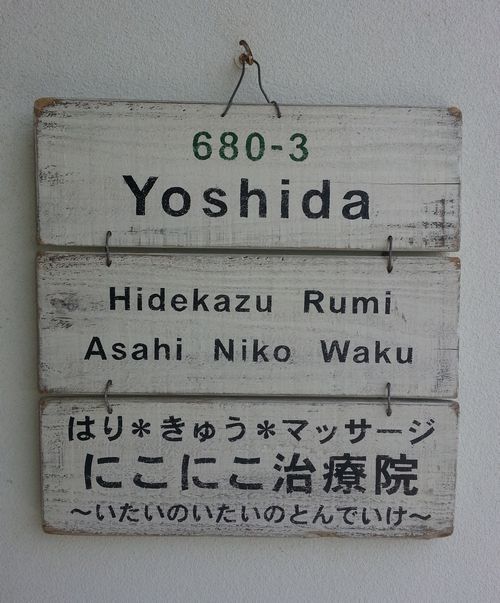 680-3
Yoshida
Hidekazu Rumi
Asahi Niko Waku
はり＊きゅう＊マッサージ
にこにこ治療院
～いたいのいたいのとんでいけ～